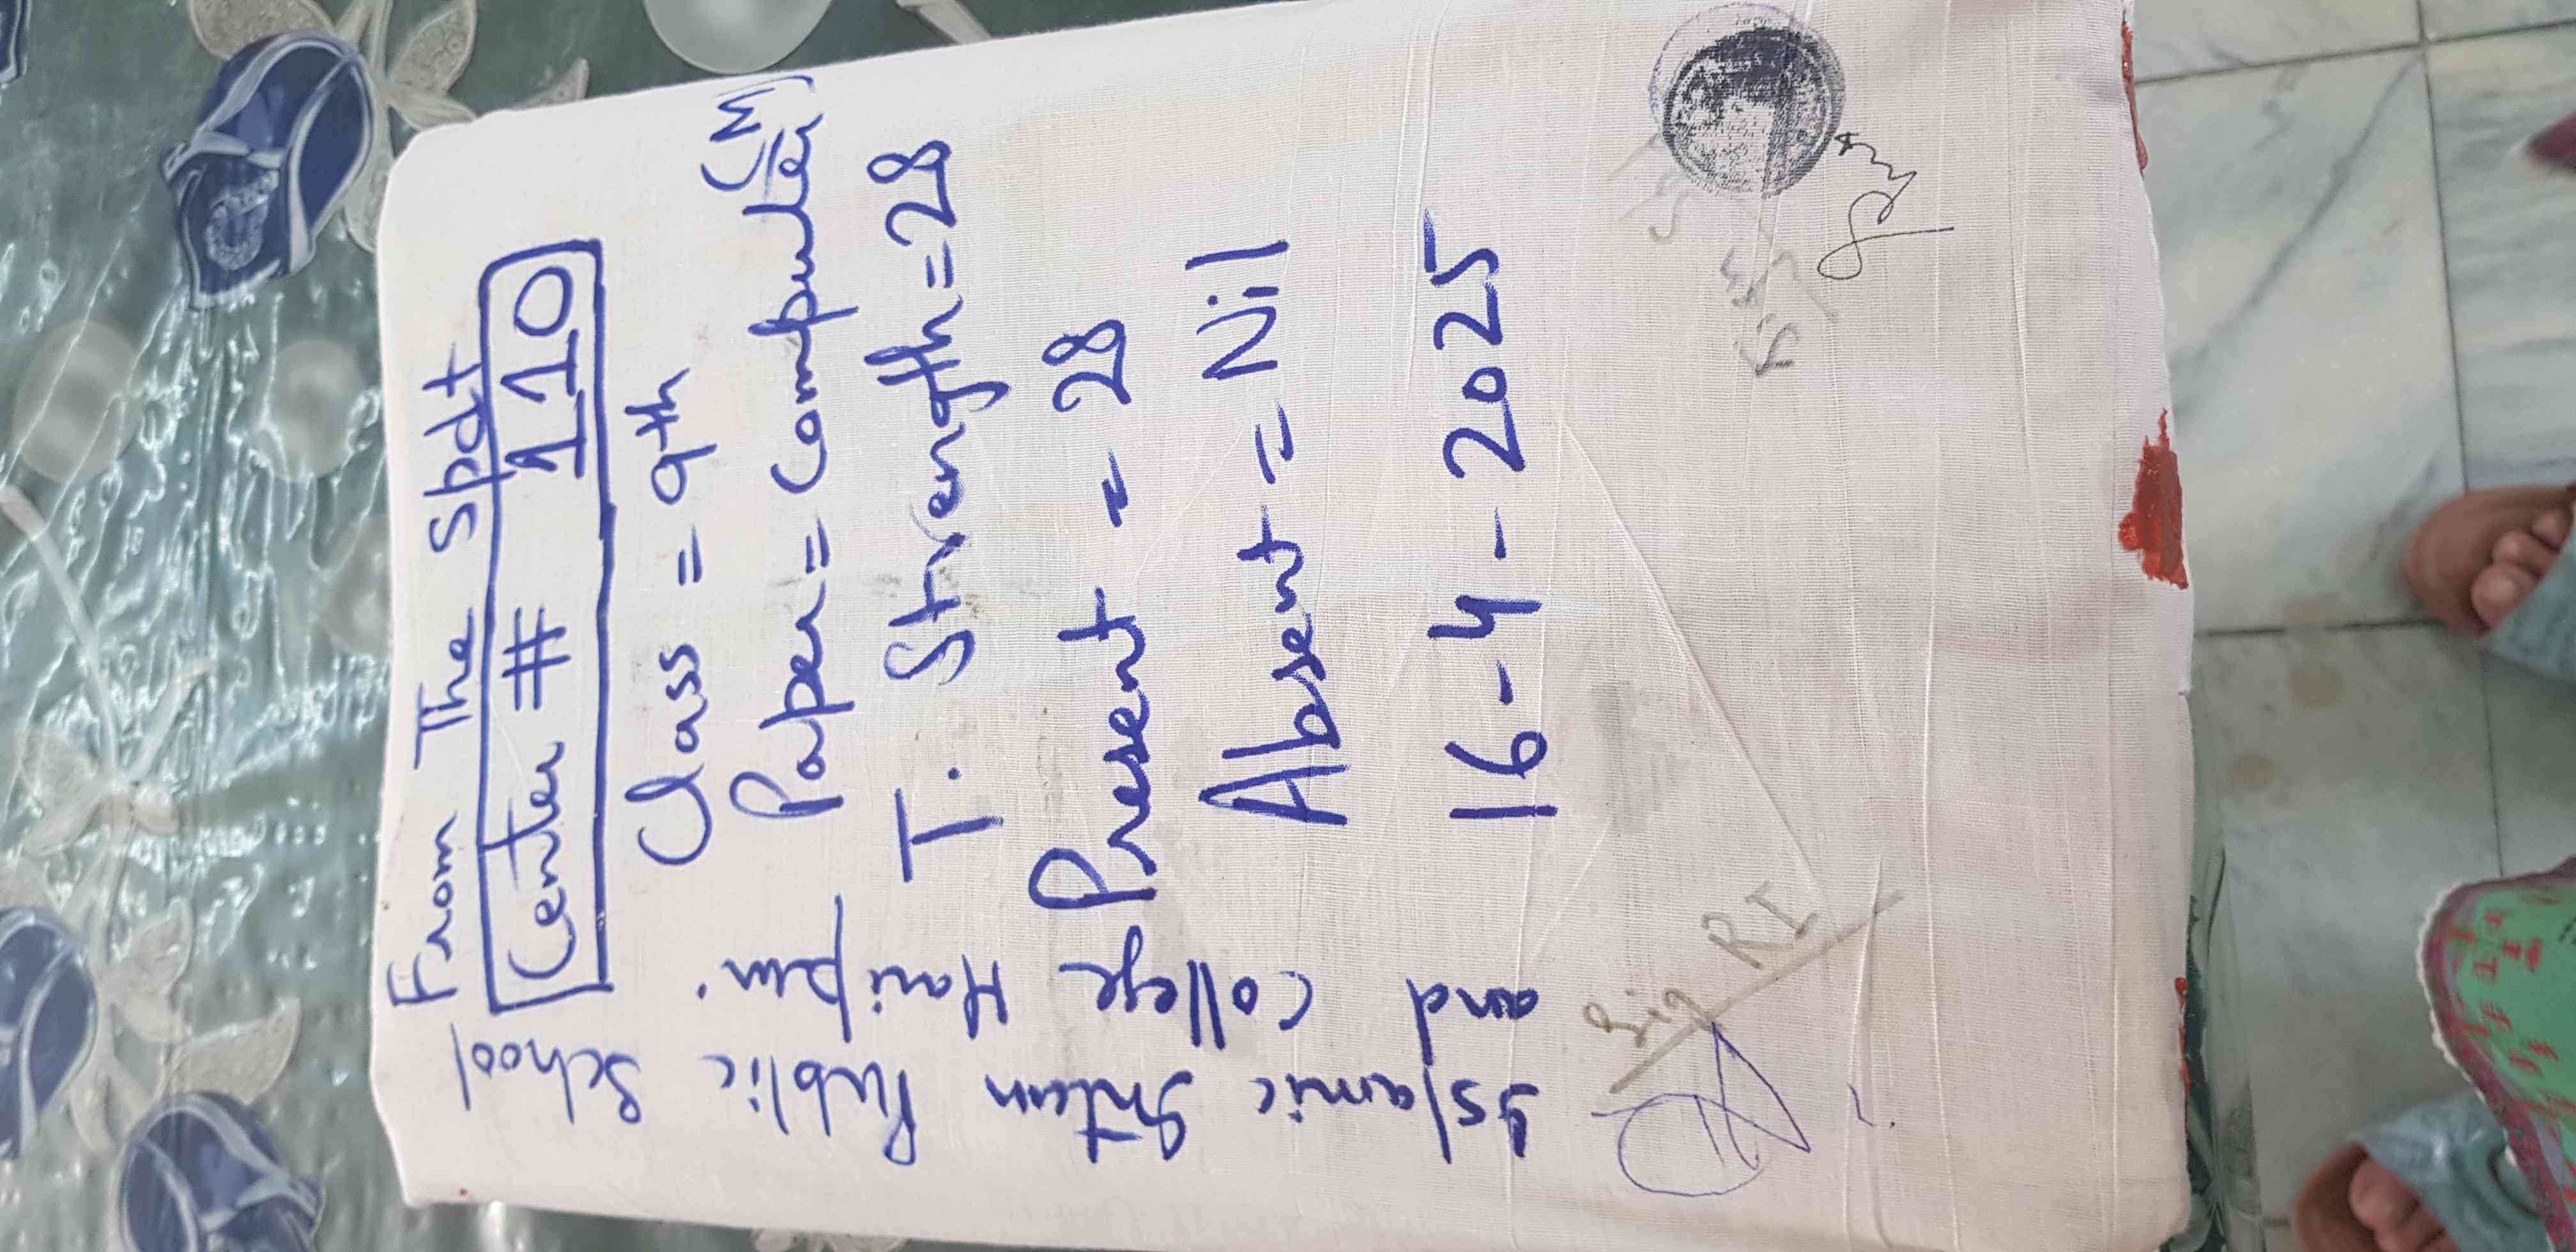 From The Spdt
Center # 110
Class = 9th
(M)
Paper = Computer
T. Strength = 28
Present = 28
Absent = Nil
16-4-2025
Islamic Intern Public School
and College Haripur.
Sig RI